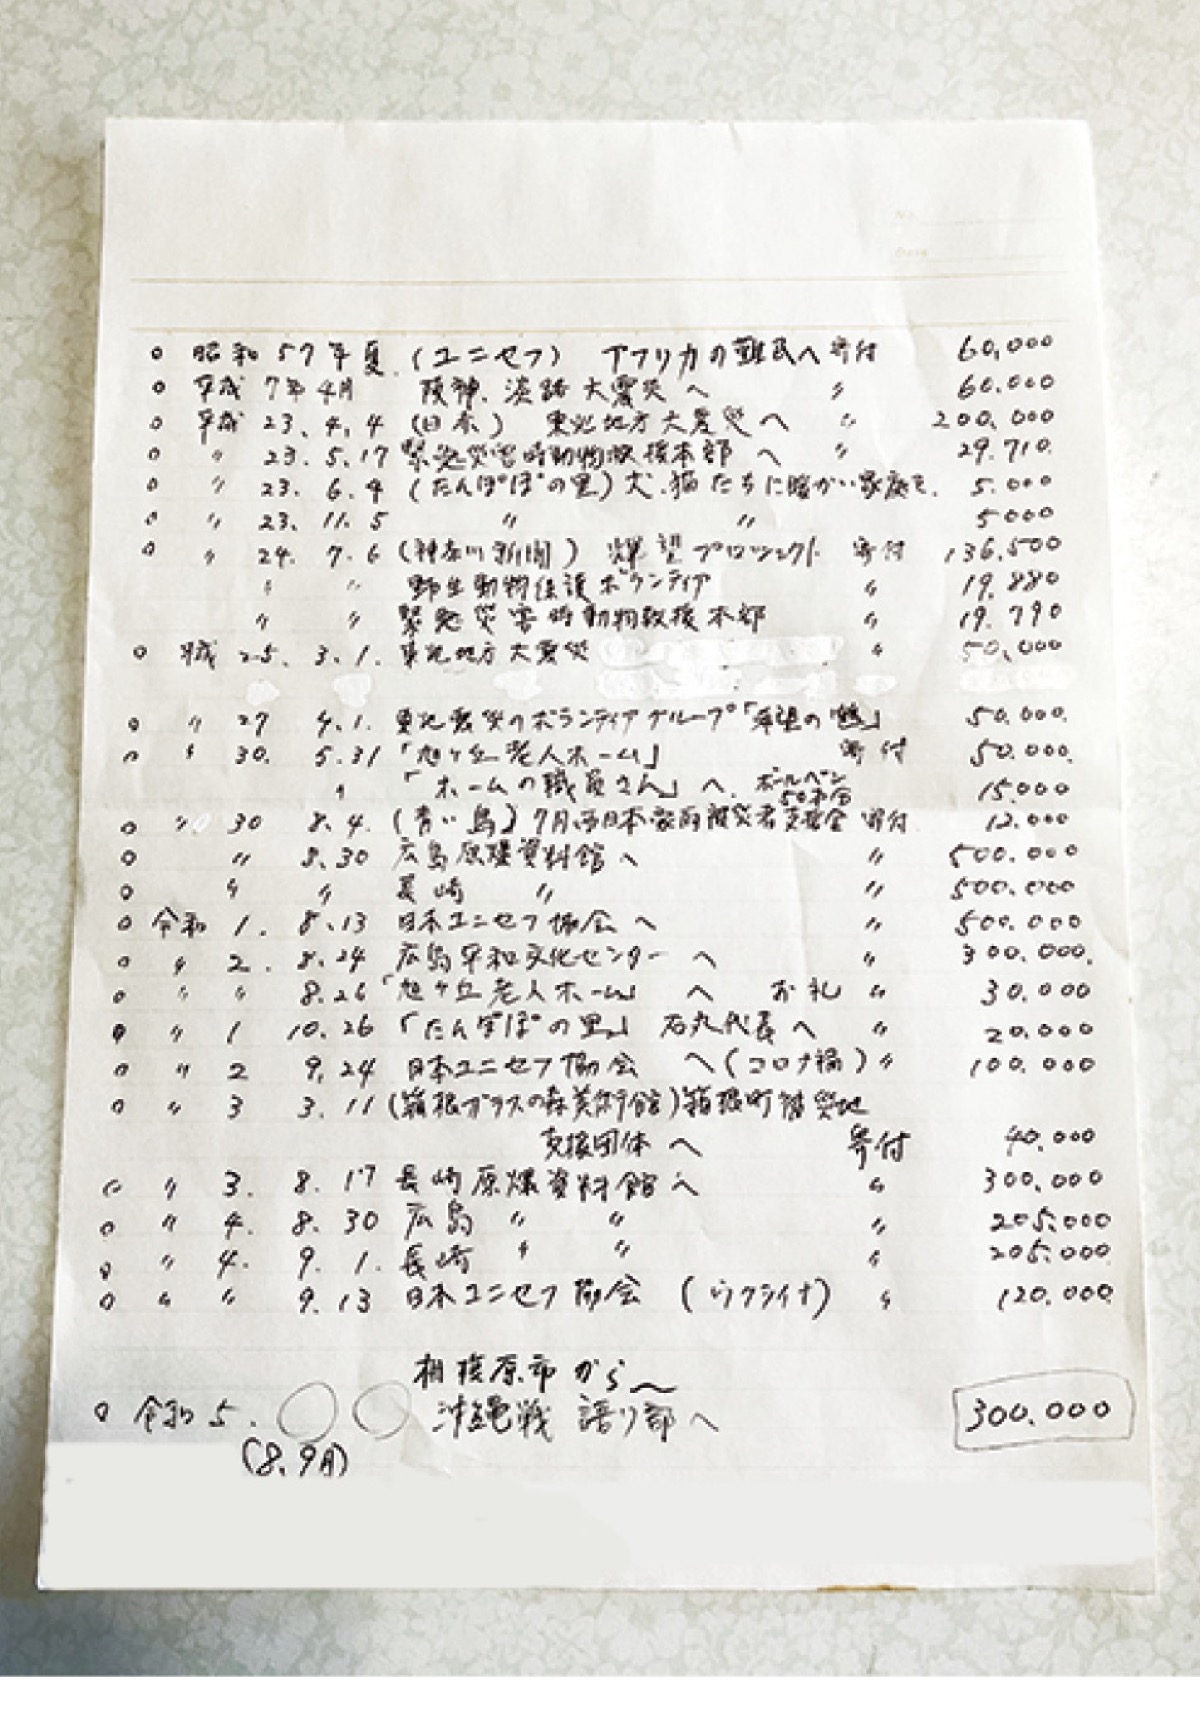 No.
Date
○ 昭和57年夏 (ユニセフ) アフリカの難民へ 寄付 60,000
○ 平成 7年4月 阪神、淡路大震災へ 〃 60.000
○ 平成 23.4.4 (日本) 東北地方大震災へ 〃 200.000
○ 〃 23.5.17 緊急災害時動物救援本部へ 〃 29.710
○ 〃 23.6.4 (たんぽぽの里) 犬、猫たちに暖かい家庭を 5.000
○ 〃 23.11.5 〃 〃 5000
○ 〃 24.7.6 (神奈川新聞) 輝望プロジェクト 寄付 136,500
〃 〃 野生動物保護ボランティア 〃 19.880
〃 〃 緊急災害時動物救援本部 〃 19.790
○ 平成 25.3.1. 東北地方大震災 〃 50,000
○ 〃 27 4.1. 東北震災のボランティアグループ「希望の鶴」 50.000.
○ 〃 30. 5.31 「旭ヶ丘老人ホーム」 寄付 50.000.
〃 「ホームの職員さん」へ、ボールペン 15.000
○ 〃 30 8.4. (青い鳥) 7月西日本豪雨被災者支援金 寄付 12.000
○ 〃 8.30 広島原爆資料館へ 〃 500.000
○ 〃 〃 長崎 〃 〃 500.000
○ 令和 1. 8.13 日本ユニセフ協会へ 〃 500.000
○ 〃 2. 8.24 広島平和文化センターへ 〃 300.000.
○ 〃 〃 8.26 「旭ヶ丘老人ホーム」 へ お礼 〃 30.000
○ 〃 1 10.26 「たんぽぽの里」 石丸代表へ 〃 20.000
○ 〃 2 9.24 日本ユニセフ協会 へ(コロナ禍) 〃 100.000
○ 〃 3 3.11 (箱根ガラスの森美術館)箱根町被災地
支援団体へ 寄付 40.000
○ 〃 3. 8.17 長崎原爆資料館へ 〃 300.000
○ 〃 4. 8.30 広島 〃 〃 〃 205.000
○ 〃 4. 9.1. 長崎 〃 〃 〃 205.000
○ 〃 〃 9.13 日本ユニセフ協会 (ウクライナ) 〃 120.000
相模原市からへ
○ 令和5. ○ ○ 沖縄戦 語り部へ 300.000
(8、9月)